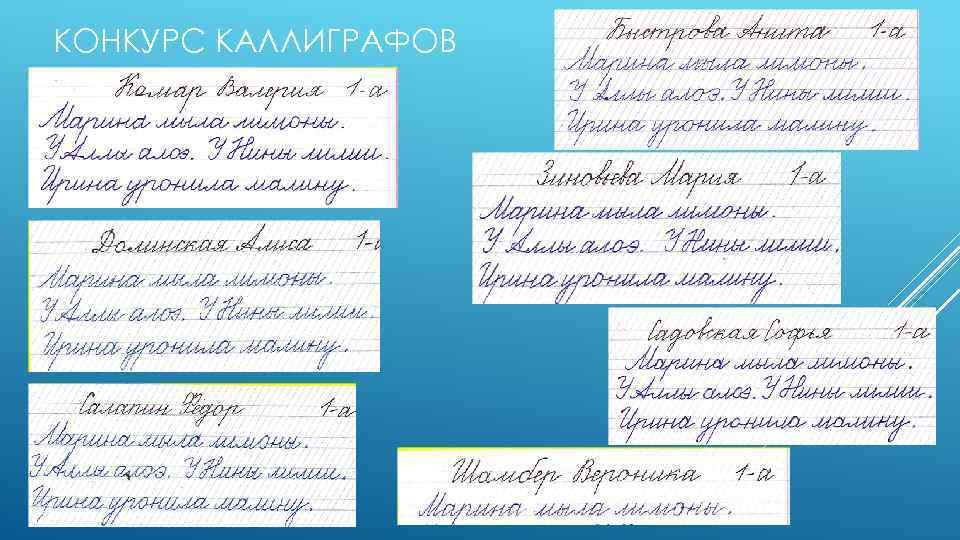 КОНКУРС КАЛЛИГРАФОВ
Комар Валерия 1-а
Марина мыла лимоны.
У Аллы алоэ. У Нины лилии.
Ирина уронила малину.
Долинская Алиса 1-а
Марина мыла лимоны.
У Аллы алоэ. У Нины лилии.
Ирина уронила малину.
Салапин Фёдор 1-а
Марина мыла лимоны.
У Аллы алоэ. У Нины лилии.
Ирина уронила малину.
Быстрова Анита 1-а
Марина мыла лимоны.
У Аллы алоэ. У Нины лилии.
Ирина уронила малину.
Зиновьева Мария 1-а
Марина мыла лимоны.
У Аллы алоэ. У Нины лилии.
Ирина уронила малину.
Садовская Софья 1-а
Марина мыла лимоны.
У Аллы алоэ. У Нины лилии.
Ирина уронила малину.
Шамбер Вероника 1-а
Марина мыла лимоны.